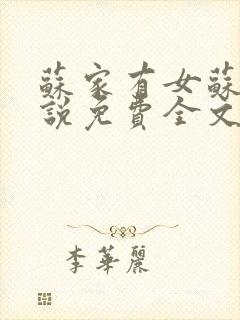 蘇家有女蘇
說免費全文
李華麗